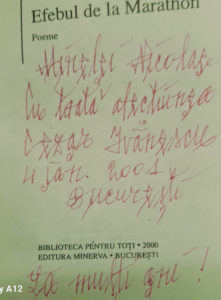 Efebul de la Marathon
Poeme
Mineiei Nicolae
Cu toată afecțiunea
Cezar Ivănescu
11 ian. 2001
București
BIBLIOTECA PENTRU TOȚI • 2000
EDITURA MINERVA • BUCUREȘTI
La mulți ani!
y A12